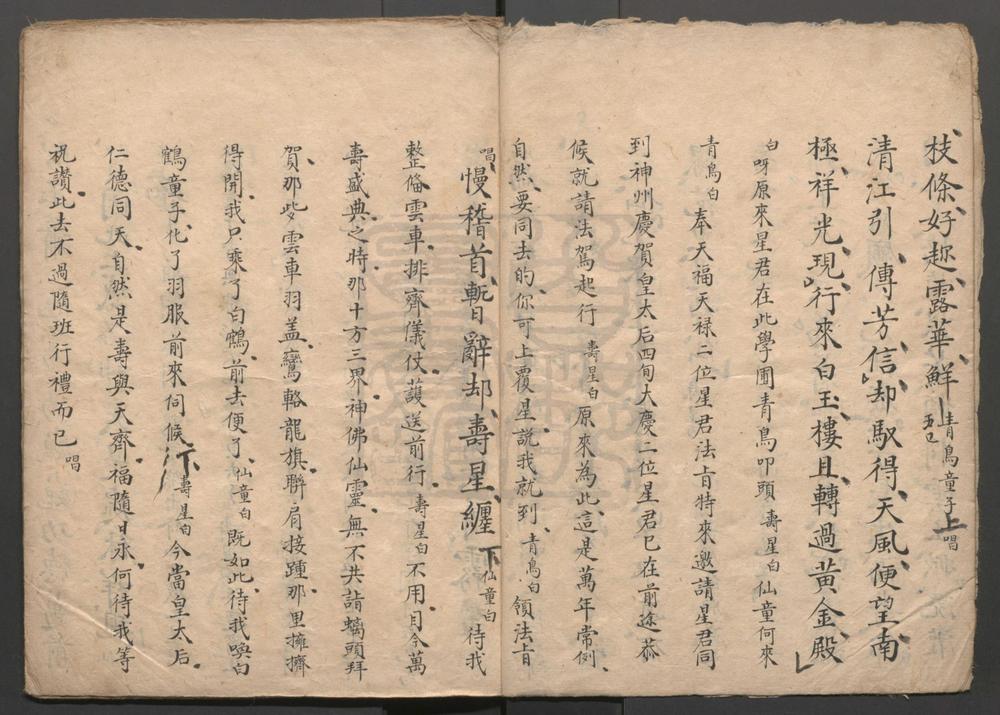 枝條好趂露華鮮 青鳥童子上唱
清江引 傳芳信却馭得天風便望南
極祥光現行來白玉樓且轉過黃金殿
白呀原來星君在此學圃青鳥叩頭壽星白仙童何來
青鳥白奉天福天禄二位星君法旨特來邀請星君同
到神州慶賀皇太后四旬大慶二位星君已在前途恭
候就請法駕起行壽星白原來為此這是萬年常例
自然要同去的你可上覆星說我就到青鳥白領法旨
唱慢稽首暫辭却壽星纏下仙童白待我
整偹雲車排齊儀仗護送前行壽星白不用目今萬
壽盛典之時那十方三界神佛仙靈無不共詣螭頭拜
賀那些雲車羽盖鸞輅龍旗聯肩接踵那里擁擠
得開我只乘了白鶴前去便了仙童白既如此待我喚白
鶴童子化了羽服前來伺候下壽星白今當皇太后
仁德同天自然是壽與天齊福隨日永何待我等
祝讃此去不過隨班行禮而已唱